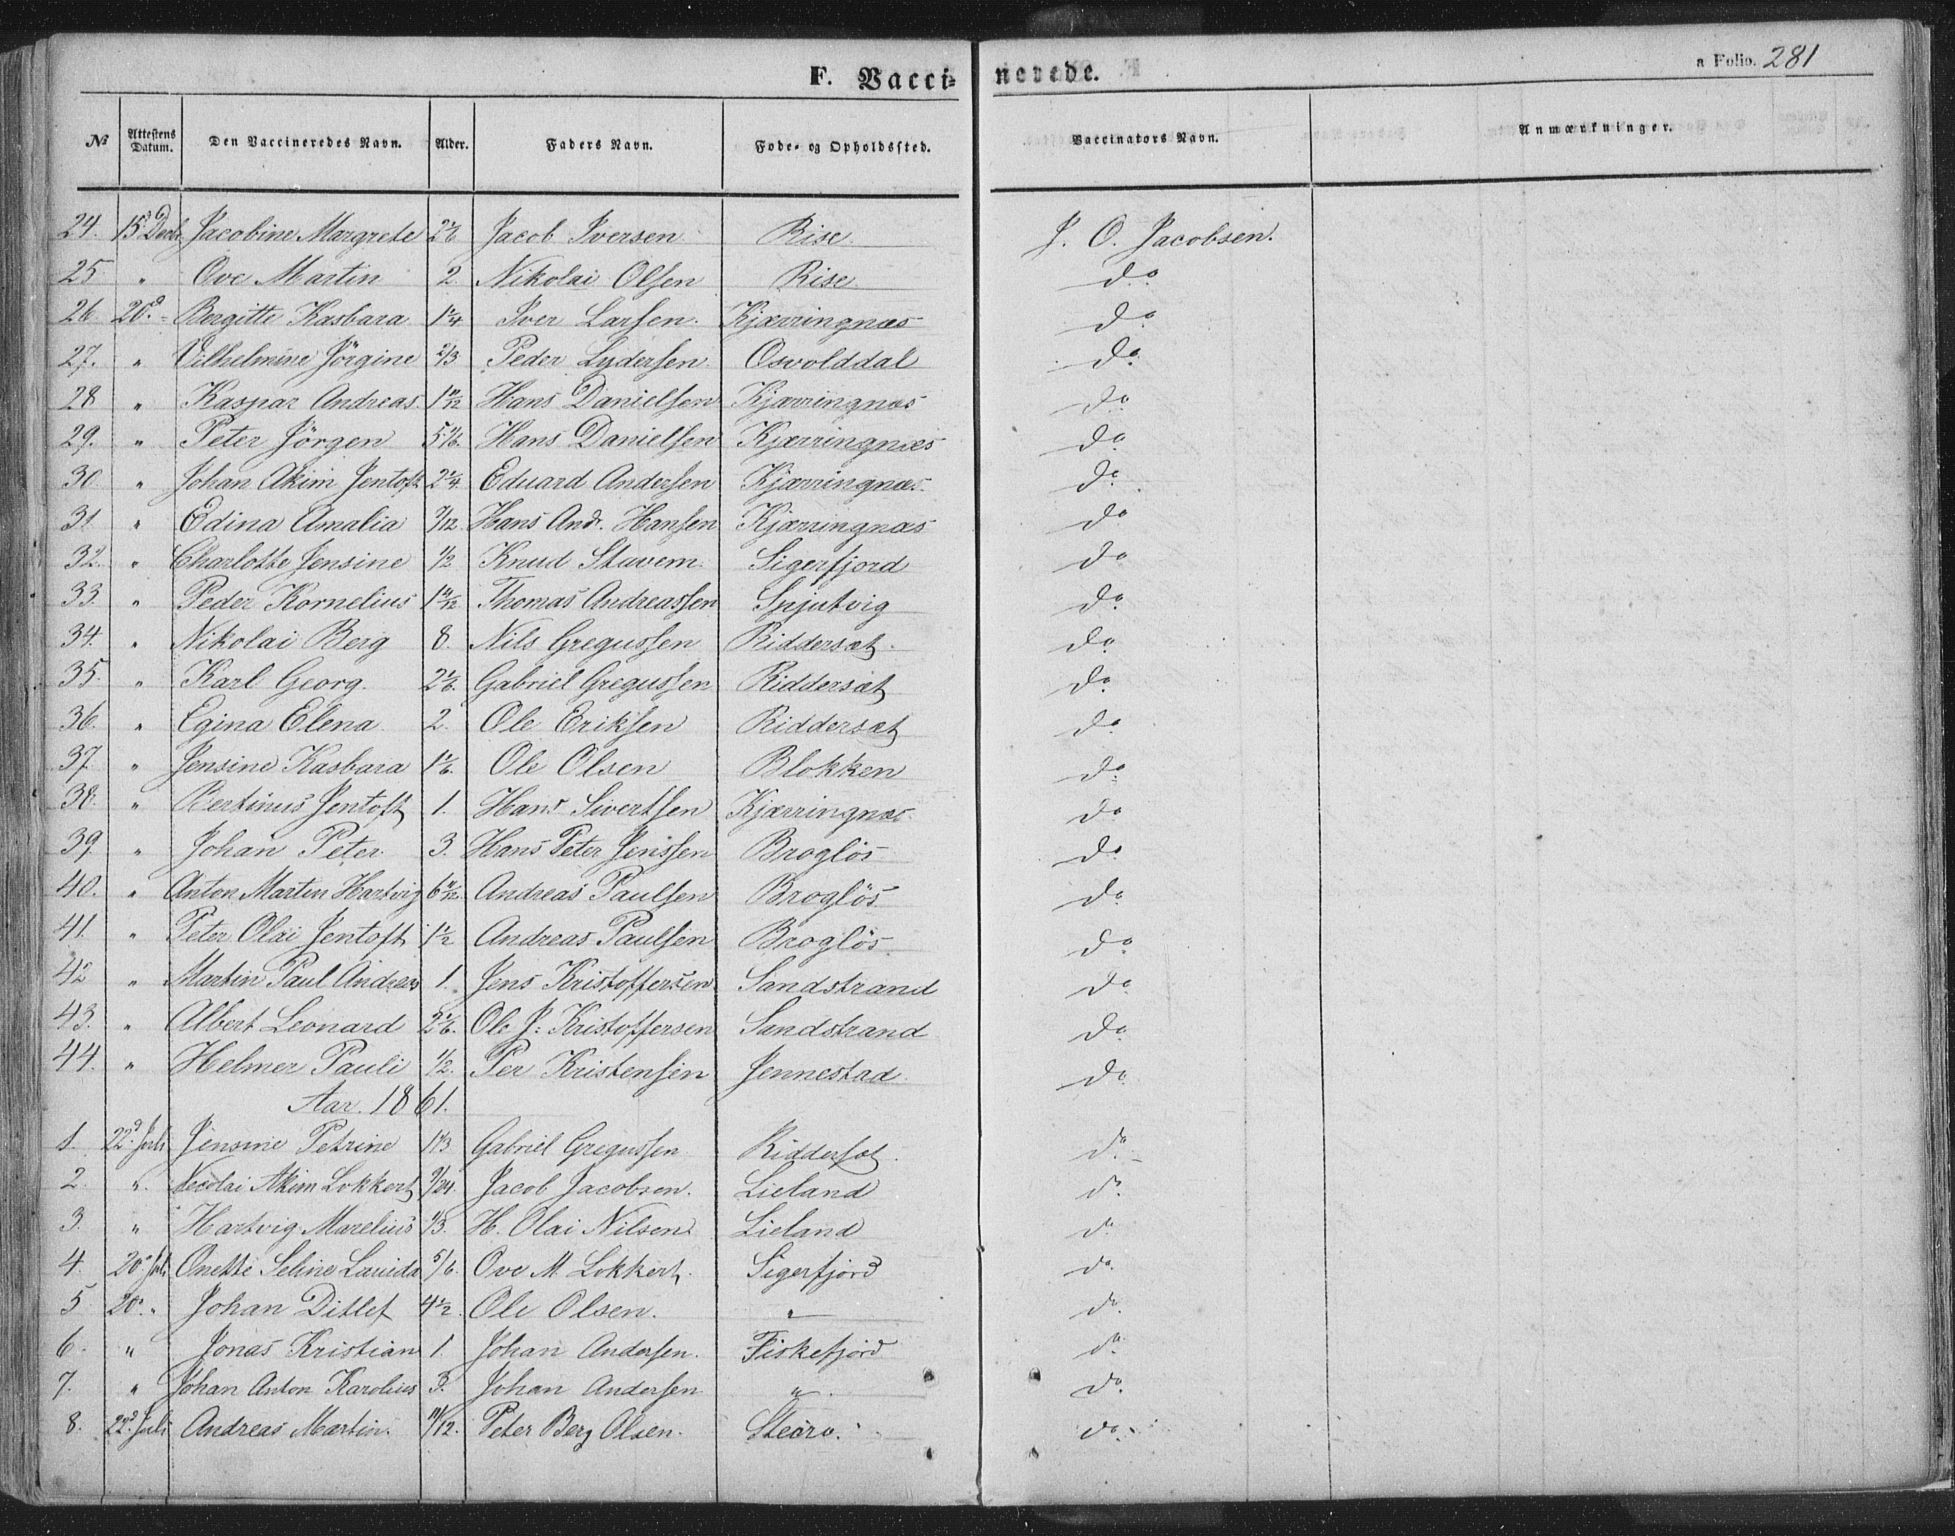 F. Vacci- nerede. a Folio. 281
№ Attestens Datum. Den Vaccineredes Navn. Alder. Faders Navn. Føde- og Opholdssted. Vaccinators Navn. Anmærkninger.
24. 15d Decbr Jacobine Margrete 2 1/6 Jacob Iversen Rise. J. O. Jacobsen.
25 " Ove Martin 2 Nikolai Olsen Rise. do
26 20d - Bergitte Kasbara 1 1/4 Iver Larsen. Kjærringnæs do
27. " Vilhelmine Jörgine 2/3 Peder Lydersen. Osvolddal do
28 " Kaspar Andreas. Hans Danielsen Kjærringnæs do
29. " Peter Jörgen 5 1/6. Hans Danielsen Kjærringnæs do
30 " Johan Akim Jentoft 2 1/4 Eduard Andersen Kjærringnæs. do
31 " Edina Amalia 7/12 Hans Andr. Hansen Kjærringnæs do
32. " Charlotte Jensine 1/2 Knud Stavem. Sigerfjord do
33. " Peder Kornelius Thomas Andreassen Spjutvig do
34. " Nikolai Berg 8. Nils Gregussen Riddersæt. do
35. " Karl Georg. 2 1/6. Gabriel Gregussen Riddersæt do
36. " Egina Elena 2. Ole Eriksen Riddersæt do
37. " Jensine Kasbara 1 1/6. Ole Olsen Blokken do
38. " Bertinus Jentoft 1. Hans Sivertsen Kjærringnæs. do
39 " Johan Peter 3. Hans Peter Jenssen Broglös do
40. " Anton Martin Hartvig Andreas Paulsen Broglös do
41. " Peter Olai Jentoft 1 1/2 Andreas Paulsen Broglös do
42 " Martin Paul Andreas 1. Jens Kristoffersen Sandstrand do
43. " Albert Leonard Ole J. Kristoffersen Sandstrand do
44. " Helmer Pauli 1/2. Per Kristensen Jennestad. do
Aar. 1861.
1. 22d Juli Jensine Petrine Gabriel Gregussen Riddersæt. do
2. " Nicolai Akim Lokkert Jacob Jacobsen. Lieland do
3. " Hartvig Marelius 1/3. H. Olai Nilsen Lieland do
4. 20d Juli Onette Seline Lauida 5/6. Ove M. Lokkert. Sigerfjord do
5 20d " Johan Ditlef 4 1/2. Ole Olsen. " do
6. " Jonas Kristian 1. Johan Andersen. Fiskefjord do
7. " Johan Anton Karolius 3. Johan Andersen " do
8. 22d Juli Andreas Martin. 11/12. Peter Berg Olsen. do